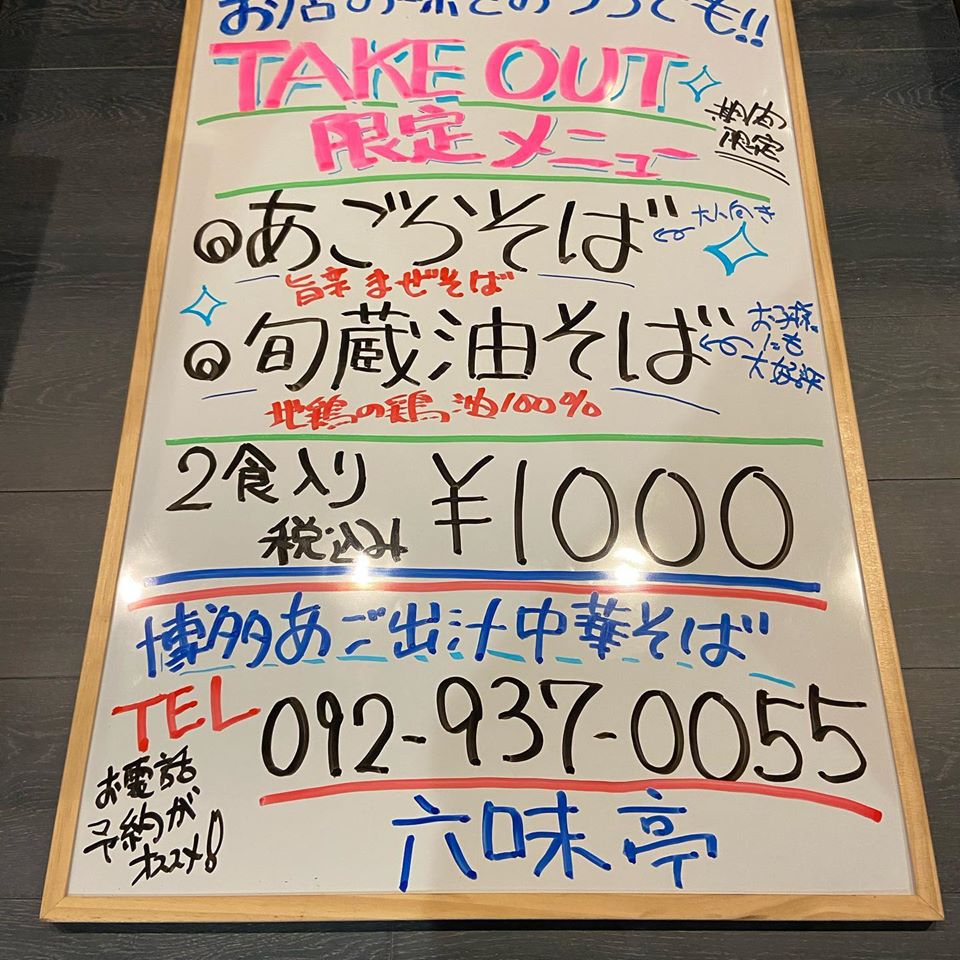 お店の味をおうちでも!!
TAKE OUT
限定メニュー
期間
限定
あごらそば
大人向き
旨辛まぜそば
旬蔵油そば
お子様
にも
大好評
地鶏の鶏油100%
2食入り
税込み
¥1000
博多あご出汁中華そば
TEL
092-937-0055
お電話
予約が
オススメ!
六味亭